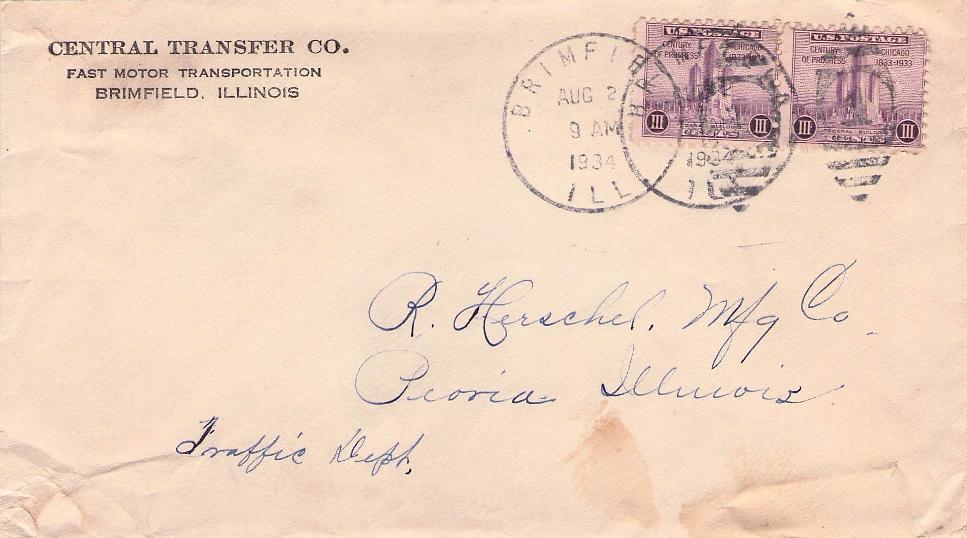 CENTRAL TRANSFER CO.
FAST MOTOR TRANSPORTATION
BRIMFIELD, ILLINOIS
BRIMFIE
AUG 2
9 AM
1934
ILL
BR
1934
ILL
U.S. POSTAGE
CENTURY OF PROGRESS
CHICAGO
III
III
U.S. POSTAGE
CENTURY OF PROGRESS
CHICAGO 1833-1933
FEDERAL BUILDING
III
III
R. Herschel. Mfg Co.
Peoria Illinois
Traffic Dept.